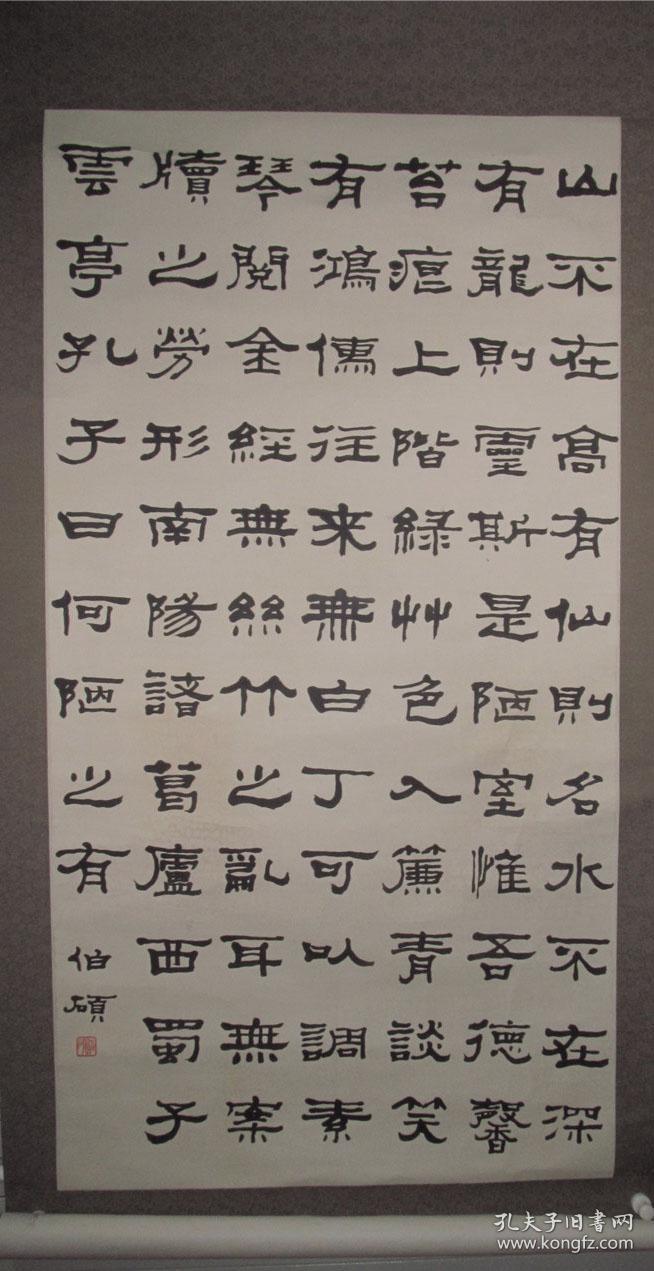 山不在高有仙則名水不在深
有龍則靈斯是陋室惟吾德馨
苔痕上階綠艸色入簾青談笑
有鴻儒往来無白丁可以調素
琴閱金經無絲竹之亂耳無案
牘之勞形南陽諸葛廬西蜀子
雲亭孔子曰何陋之有
伯碩
孔夫子旧書网
www.kongfz.com